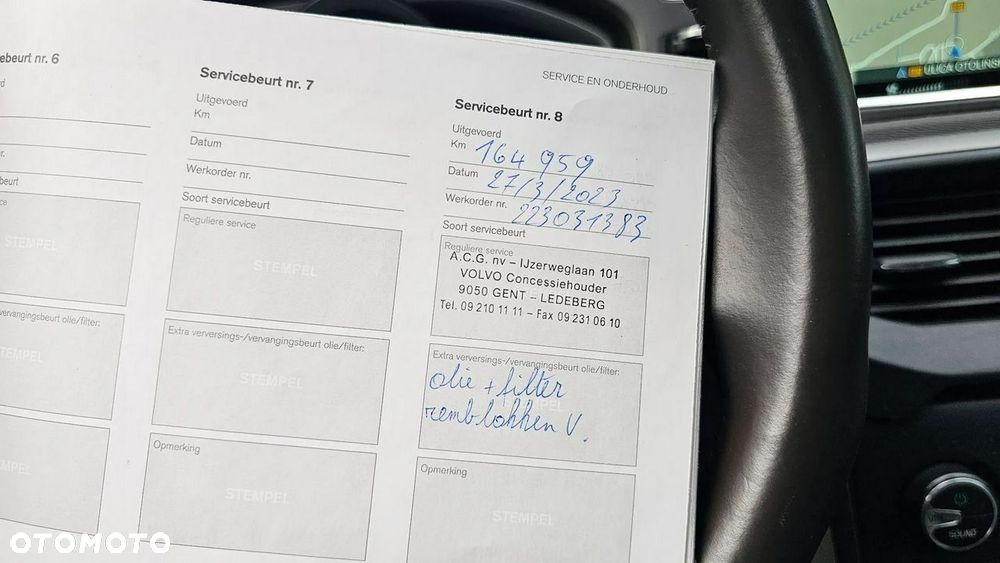 SERVICE EN ONDERHOUD
ebeurt nr. 6
beurt
STEMPEL
vervangingsbeurt olie/filter:
STEMPEL
Servicebeurt nr. 7
Uitgevoerd
Km
Datum
Werkorder nr.
Soort servicebeurt
Reguliere service
STEMPEL
Extra verversings-/vervangingsbeurt olie/filter:
STEMPEL
Opmerking
STEMPEL
Servicebeurt nr. 8
Uitgevoerd
Km 164 959
Datum 27/3/2023
Werkorder nr. 223031383
Soort servicebeurt
Reguliere service
A.C.G. nv – IJzerweglaan 101
VOLVO Concessiehouder
9050 GENT – LEDEBERG
Tel. 09 210 11 11 – Fax 09 231 06 10
Extra verversings-/vervangingsbeurt olie/filter:
olie + filter
remblokken V.
Opmerking
STEMPEL
ULICA OTOLIŃSK
SOUND
OTOMOTO